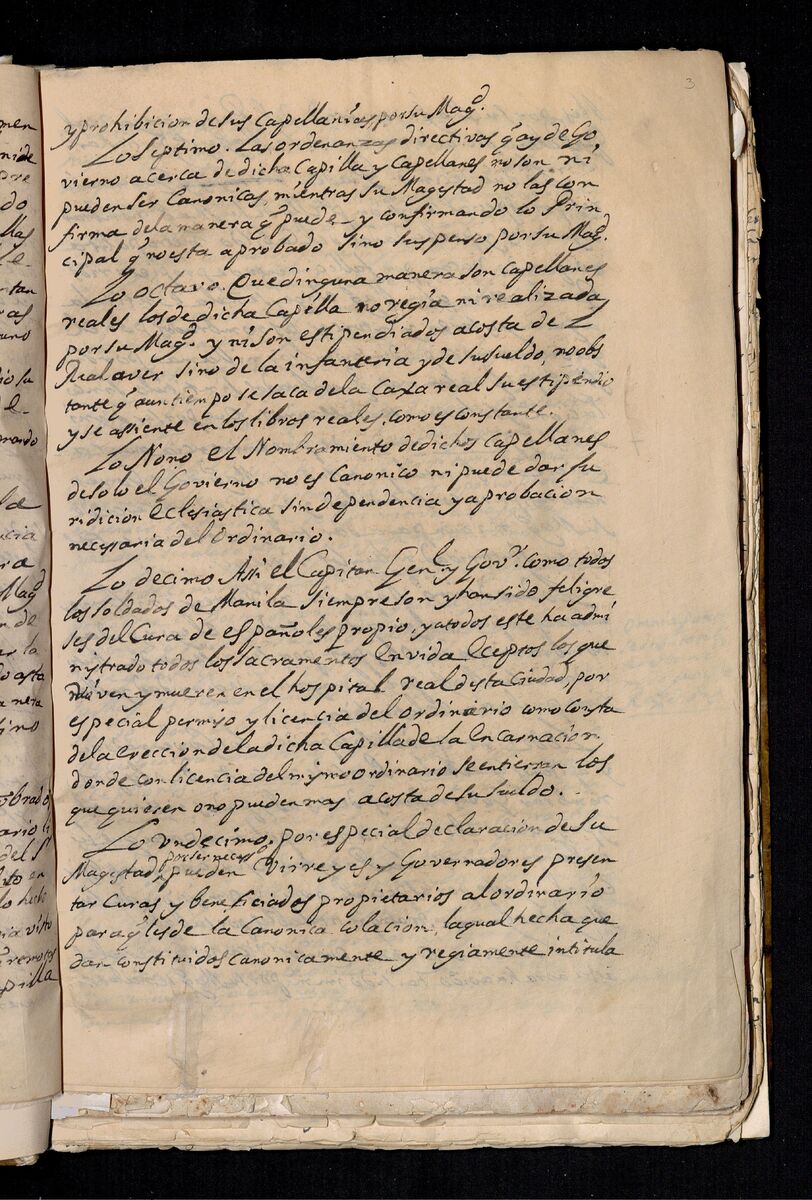 3
y prohibicion de sus Capellanías por su Magd.
Lo Septimo. Las ordenanzas directivas q̃ ay de Go
vierno acerca de dicha Capilla y Capellanes no son ni
pueden ser Canonicas, mientras su Magestad no las con
firma de la manera q̃ puede y confirmando lo Prin
cipal q̃ no esta aprobado sino suspenso por su Magd.
Lo octavo. Que dinguna manera son Capellanes
reales los de dicha Capilla no regia ni realizada
por su Magd. y ni son estipendiados acosta de L
Real aver sino de la infanteria y de su sueldo, no obs
tante q̃ aun tiempo se saca de la Caxa real su estipendio
y se assiente en los libros reales, como es constante.
Lo Nono el Nombramiento de dichos Capellanes
de solo el Govierno no es Canonico ni puede dar Ju
ridición Eclesiástica sin dependencia y aprobacion
necessaria del Ordinario.
Lo decimo Assi el Capitan Genl. y Govr. como todos
los soldados de Manila siempre son y han sido feligre
ses del Cura de españoles propio, y a todos este ha admi
nistrado todos los Sacramentos En vida Eceptos los que
viven y mueren en el hospital real desta Ciudad, por
especial permiso y licencia del ordinario como Consta
de la Ereccion de la dicha Capilla de la Encarnacion.
donde con licencia del mismo ordinario se entierran los
que quieren o no pueden mas acosta de su sueldo.
Lo undecimo, por especial declaración de Su
Magestad, pueden Virreyes y Governadores presen
tar Curas y beneficiados propietarios al ordinario
para q̃ les de la Canonica Colacion, la qual hecha que
dan constituidos canonicamente y regiamente intitula